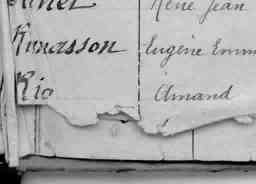 René Jean
Renasson Eugène Emm
Rio Amand